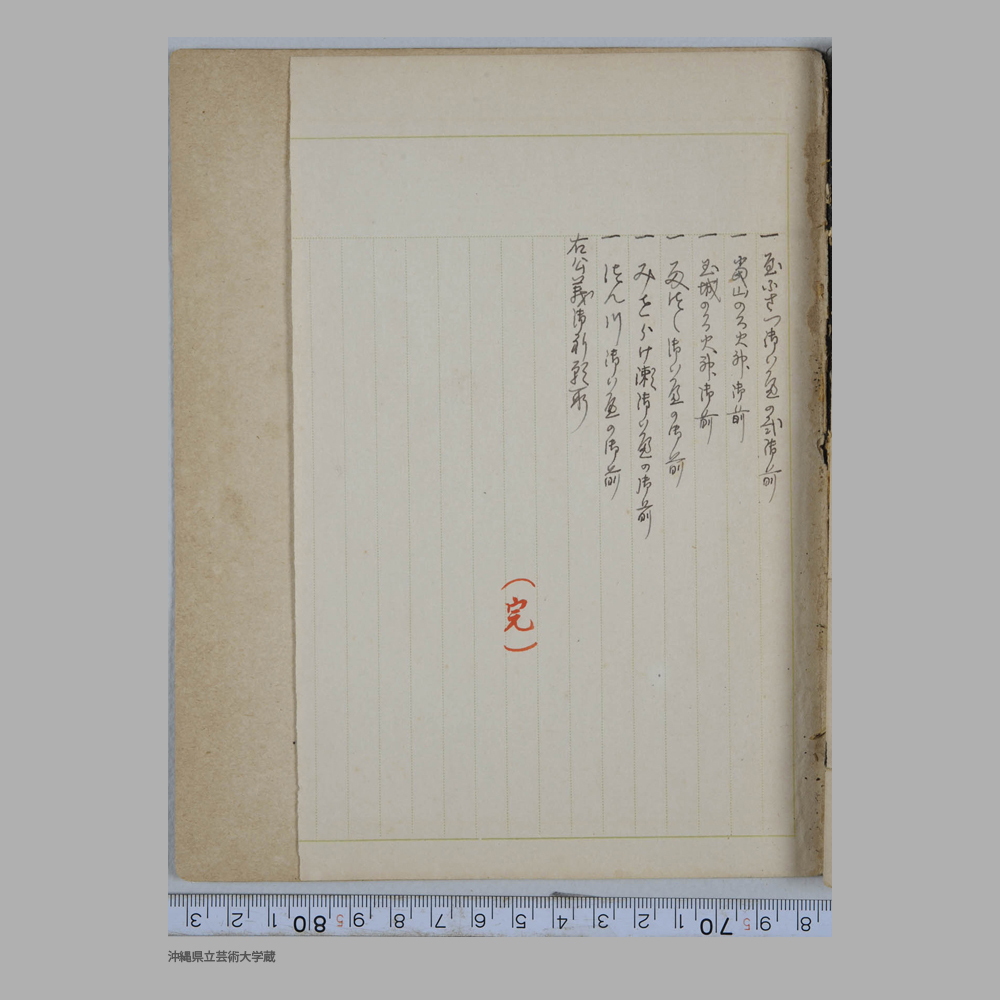 一 ぶさつ御いべの貳御前
一 當山のろ火神御前
一 玉城のろ火神御前
一 御いべの御前
一 みせらけ瀬御いべの御前
一 はん川御いべの御前
右公義御祈願所
（完）
3 2 1 80 9 5 8 7 6 5 4 3 2 1 70 9 5 8
沖縄県立芸術大学蔵